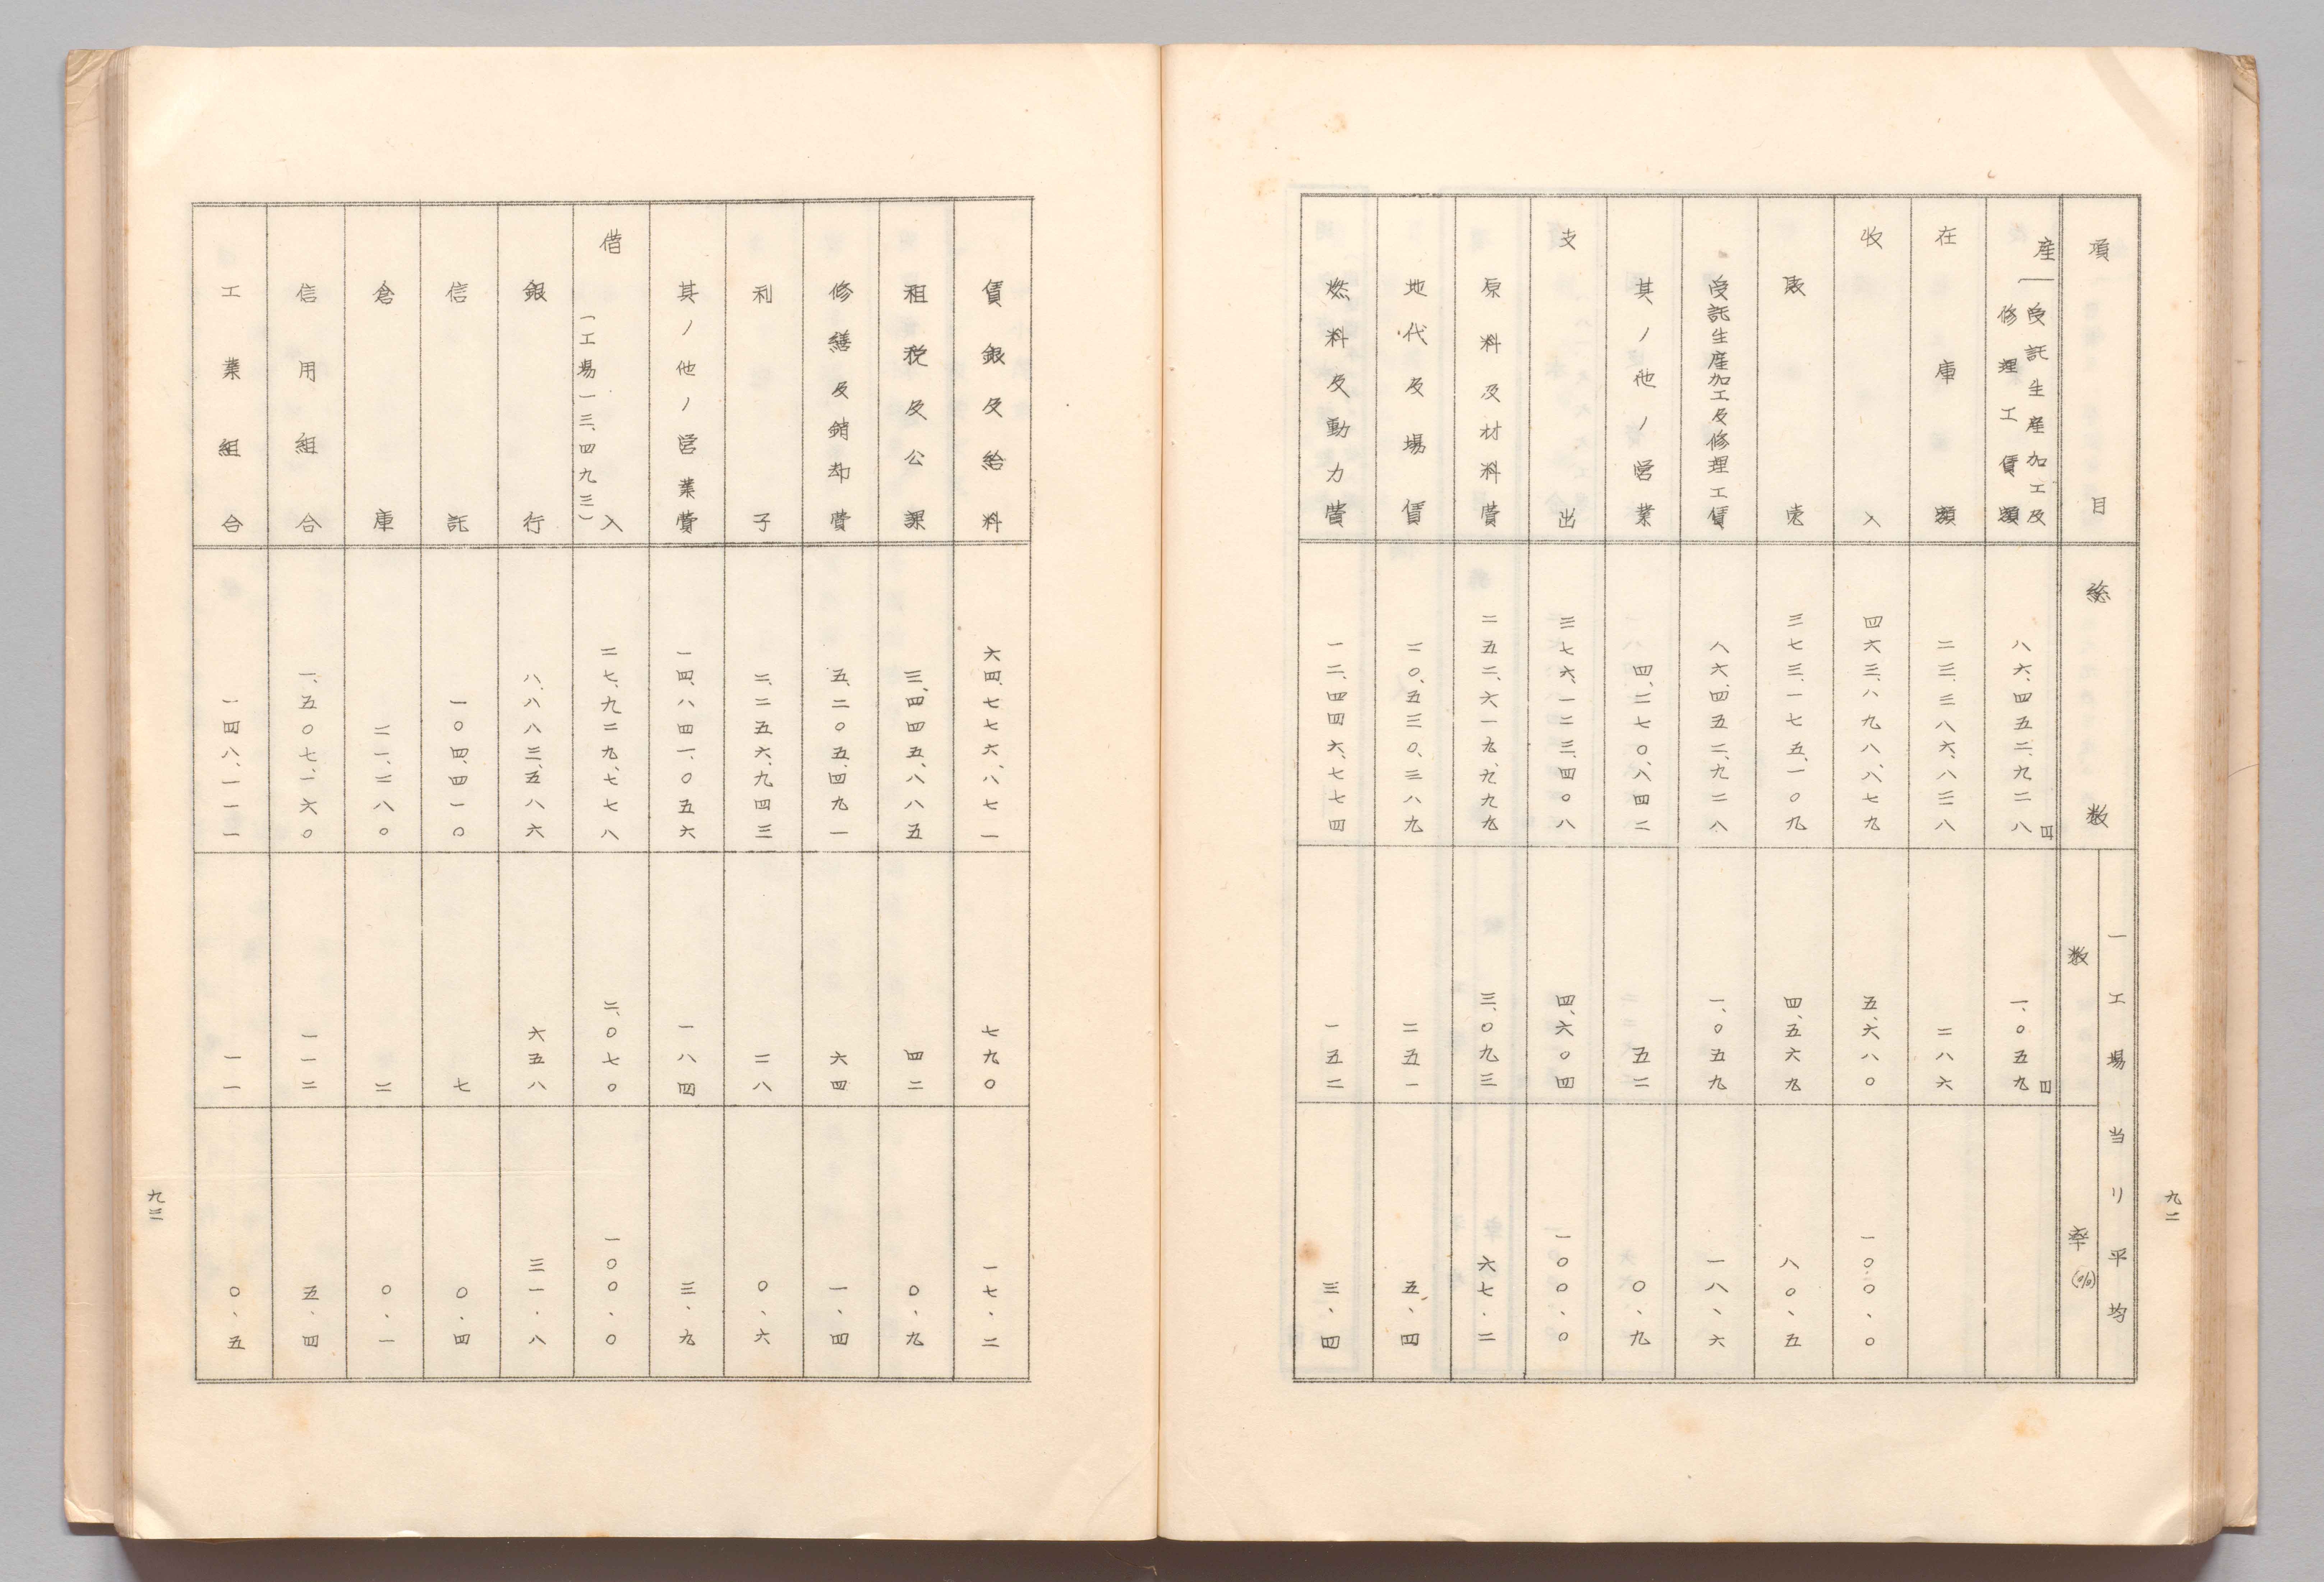 項目 総数 一工場当リ平均
数 率(%)
産 受託生産加工及修理工賃額 八六、四五二、九二八円 一、〇五九円
在庫額 二三、三八六、八三八 二八六
收入 四六三、八九八、八七九 五、六八〇 一〇〇、〇
販売 三七三、一七五、一〇九 四、五六九 八〇、五
受託生産加工及修理工賃 八六、四五二、九二八 一、〇五九 一八、六
其ノ他ノ営業 四、二七〇、八四二 五二 〇、九
支出 三七六、一二三、四〇八 四、六〇四 一〇〇、〇
原料及材料費 二五二、六一九、九九九 三、〇九三 六七、二
地代及場賃 二〇、五三〇、三八九 二五一 五、四
燃料及動力費 一二、四四六、七七四 一五二 三、四
九二
賃銀及給料 六四、七七六、八七一 七九〇 一七、二
租税及公課 三、四四五、八八五 四二 〇、九
修繕及銷却費 五、二〇五、四九一 六四 一、四
利子 二、二五六、九四三 二八 〇、六
其ノ他ノ営業費 一四、八四一、〇五六 一八四 三、九
借入(工場一三、四九三) 二七、九二九、七七八 二、〇七〇 一〇〇、〇
銀行 八、八八三、五八六 六五八 三一、八
信託 一〇四、四一〇 七 〇、四
倉庫 二一、二八〇 二 〇、一
信用組合 一、五〇七、一六〇 一一二 五、四
工業組合 一四八、一一一 一一 〇、五
九三